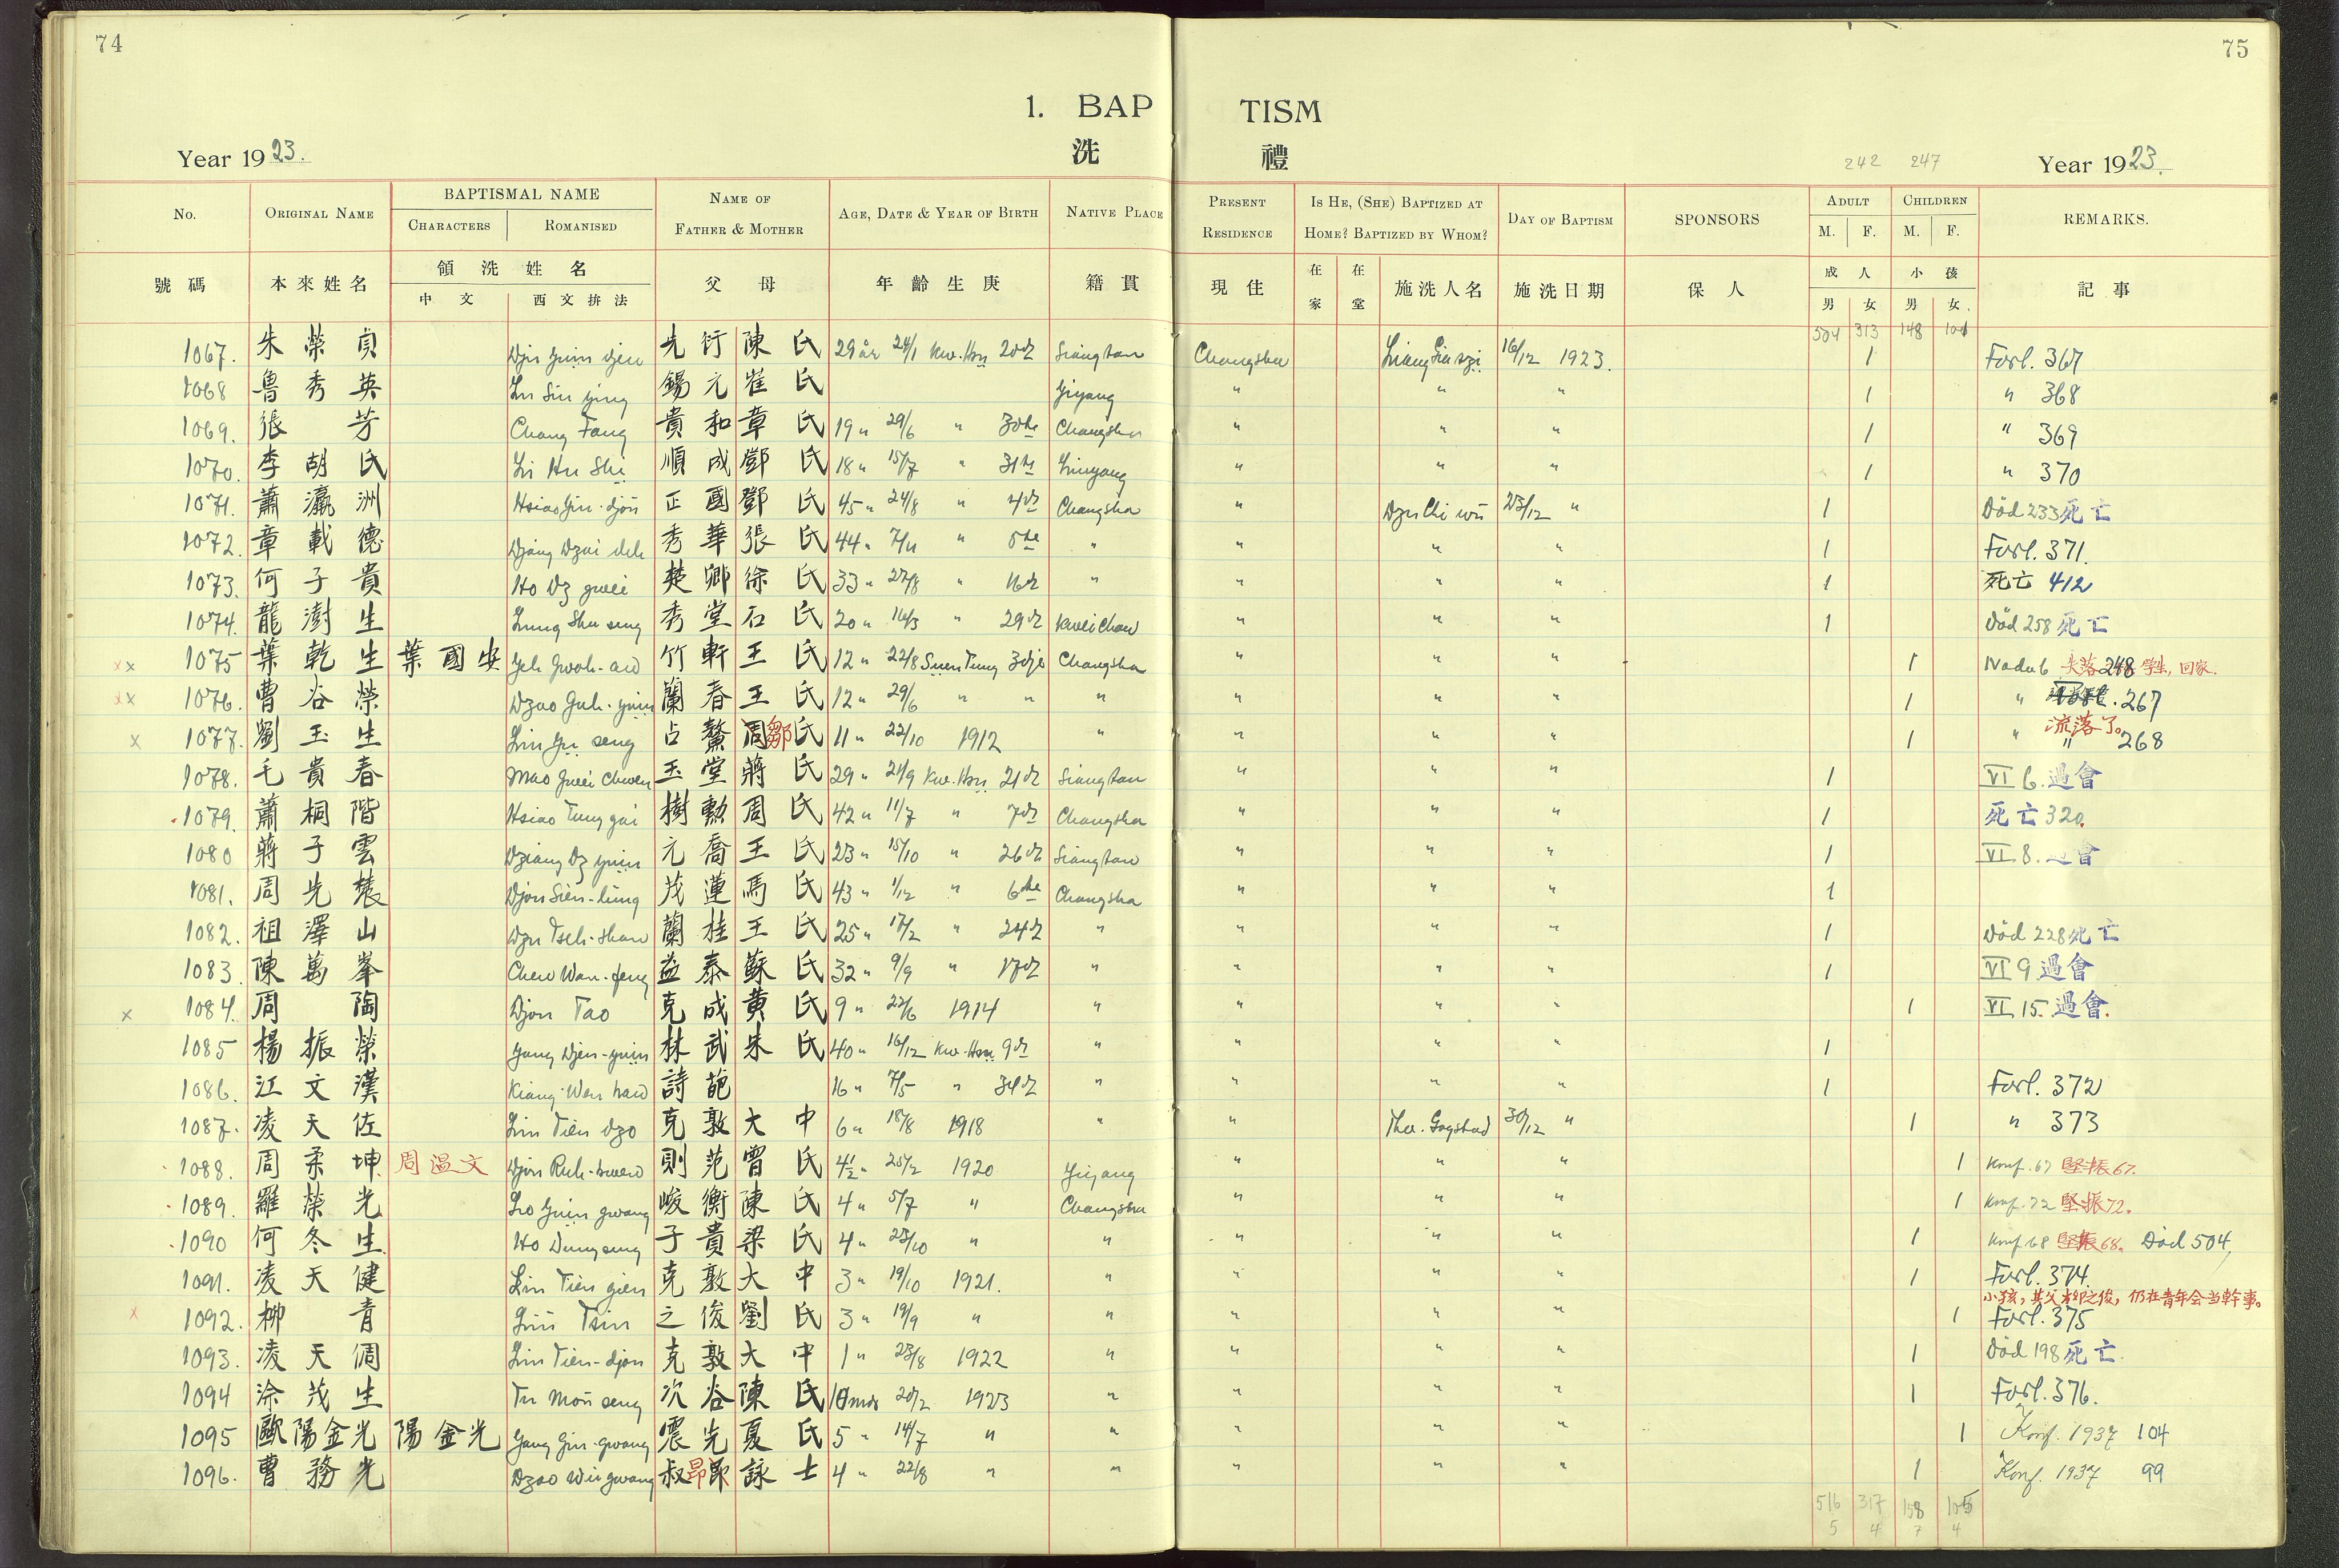 74
75
1. BAPTISM
洗 禮
Year 1923.
242 247
Year 1923.
No. ORIGINAL NAME BAPTISMAL NAME NAME OF FATHER & MOTHER AGE, DATE & YEAR OF BIRTH NATIVE PLACE PRESENT RESIDENCE IS HE, (SHE) BAPTIZED AT HOME? BAPTIZED BY WHOM? DAY OF BAPTISM SPONSORS ADULT CHILDREN REMARKS.
CHARACTERS ROMANISED M. F. M. F.
號碼 本來姓名 領洗姓名 父母 年齡生庚 籍貫 現住 在家 在堂 施洗人名 施洗日期 保人 成人 小孩 記事
中文 西文拚法 男 女 男 女.
504 313 148 101
1067. 朱榮貞 先衍 陳氏 29 år 24/1 Kw. Hsü 20de Siangtan Changsha 16/12 1923. 1 Forl. 367
1068 魯秀英 Lu Siu ying 錫元 崔氏 Yiyang " " " 1 " 368
1069. 張芳 Chang Fang 貴和 章氏 19 " 29/6 " 30te Changsha " " " 1 " 369
1070. 李胡氏 Li Hu Shi 順成 鄧氏 18 " 15/7 " 31te " " " 1 " 370
1071. 蕭瀛洲 正國 鄧氏 45 " 24/8 " 4de Changsha " Dzu Chi wu 23/12 " 1 Död 233 死亡
1072. 章載德 Djang Dzai deh 秀華 張氏 44 " 7/11 " 5te " " " " 1 Forl. 371.
1073. 何子貴 Ho Dz gwei 楚卿 徐氏 33 " 27/8 " 16de " " " " 1 死亡 412
1074. 龍澍生 Lung Shu seng 秀堂 石氏 20 " 16/3 " 29de Kweichow " " " 1 Död 258 死亡
xx 1075 葉乾生 葉國安 Yeh Gwoh-an 竹軒 王氏 12 " 22/8 Suen Tung 3dje Changsha " " " 1 失落 248 学生, 回家.
xx 1076. 曹谷榮 Dzao Guh-yuin 蘭春 王氏 12 " 29/6 " " " " " " 1 " 267
x 1077. 劉玉生 Liu Yu seng 占鰲 周鄒氏 11 " 22/10 1912 " " " " 1 " 流落了。 " 268
1078. 毛貴春 Mao Gwei Chwen 玉堂 蔣氏 29 " 21/9 Kw. Hsü 21de Siangtan " " " 1 VI 6. 過會
1079. 蕭桐階 Hsiao Tung gai 樹勲 周氏 42 " 11/7 " 7de Changsha " " " 1 死亡 320.
1080 蔣子雲 Dziang Dz yuin 元喬 王氏 23 " 15/10 " 26de Siangtan " " " 1 VI. 8. 過會
1081. 周先 茂蓮 馬氏 43 " 1/12 " 6te Changsha " " " 1
1082. 祖澤山 Dzu Tseh-shan 蘭桂 王氏 25 " 17/2 " 24de " " " " 1 Död 228 死亡
1083. 陳萬峯 Chen Wan-feng 益泰 蘇氏 32 " 9/9 " 17de " " " " 1 VI 9 過會
x 1084. 周陶 Djou Tao 克成 黄氏 9 " 22/6 1914 " " " " 1 VI 15. 過會.
1085 楊振榮 Yang Djen-yuin 林武 朱氏 40 " 16/12 Kw. Hsü 9de " " " " 1
1086. 江文漢 Kiang Wen han 詩葩 16 " 7/5 " 34de " " " " 1 Forl. 372
1087. 凌天佐 Lin Tien dzo 克敦 大中 6 " 18/8 1918 " " 30/12 " 1 " 373
1088. 周柔坤 周温文 則范 曾氏 4½ " 25/2 1920 Yiyang " " " 1 Konf. 67 堅振 67.
1089. 羅榮光 Lo Yuin gwang 峻衡 陳氏 4 " 5/7 " Changsha " " " 1 Konf. 72 堅振 72.
1090 何冬生 Ho Dung seng 子貴 梁氏 4 " 23/10 " " " " " 1 Konf 68 堅振 68. Död 504
1091. 凌天健 Lin Tien gien 克敦 大中 3 " 19/10 1921. " " " " 1 Forl. 374.
小孩, 其父柳之俊, 仍在青年会当幹事。
x 1092. 柳青 Liu Tsin 之俊 劉氏 3 " 19/9 " " " " " 1 Forl. 375
1093. 凌天倜 克敦 大中 1 " 23/8 1922 " " " " 1 Död 198 死亡.
1094 涂茂生 Tu Mou seng 次谷 陳氏 20/2 1923 " " " " 1 Forl. 376.
1095 歐陽金光 陽金光 Yang Gin-gwang 震先 夏氏 5 " 14/7 " " " " " 1 Konf. 1937 104
1096. 曹務光 Dzao Wu gwang 叔昂 詠士 4 " 22/8 " " " " " 1 Konf. 1937 99
516 317 158 105
5 4 7 4